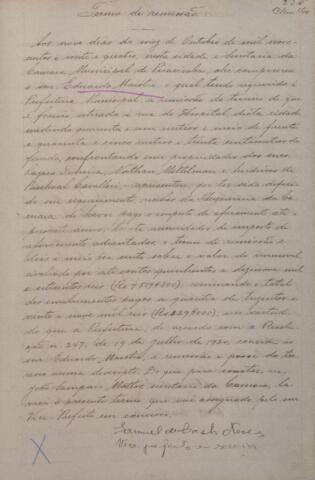 Termo de remissão
Aos nove dias do mez de Outubro de mil nove-
centos e vinte e quatro, nesta cidade e Secretaria da
Camara Municipal de Piracicaba, ahi compareceu
o snr. Eduardo Maestro o qual tendo requerido á
Prefeitura Municipal, a remissão do terreno de que
é foreiro situado á rua do Hospital, desta cidade,
medindo quarenta e um metros e meio de frente
e quarenta e cinco metros e trinta centimetros de
fundo, confrontando com propriedades dos snrs.
Nathan Mittelman e herdeiros de
Paschoal Cavalieri, apresentou, por ter sido deferi-
do seu requerimento, recibo da Thezouraria da Ca-
mara de haver pago o imposto de aforamento até o
presente anno, annuidades de imposto de
aforamento adiantadas, o termo de remissão e
dois e meio por cento sobre o valor do immovel
avaliado por sete contos quinhentos e dezenove mil
e oitocentos reis sommando o total
dos emolumentos pagos a quantia de trezentos e
vinte e nove mil reis em virtude
do que a Prefeitura, de accordo com a Resolu-
ção n. 247, de 19 de Julho de 1920, concede ao
snr. Eduardo Maestro, a remissão e posse do ter-
reno acima descripto. Do que para constar, eu,
Sampaio Mattos secretario da Camara, la-
vrei o presente termo que vai assignado pelo snr.
Vice-Prefeito em exercicio.
Samuel de Castro Neves
Vice prefeito em exercicio
X